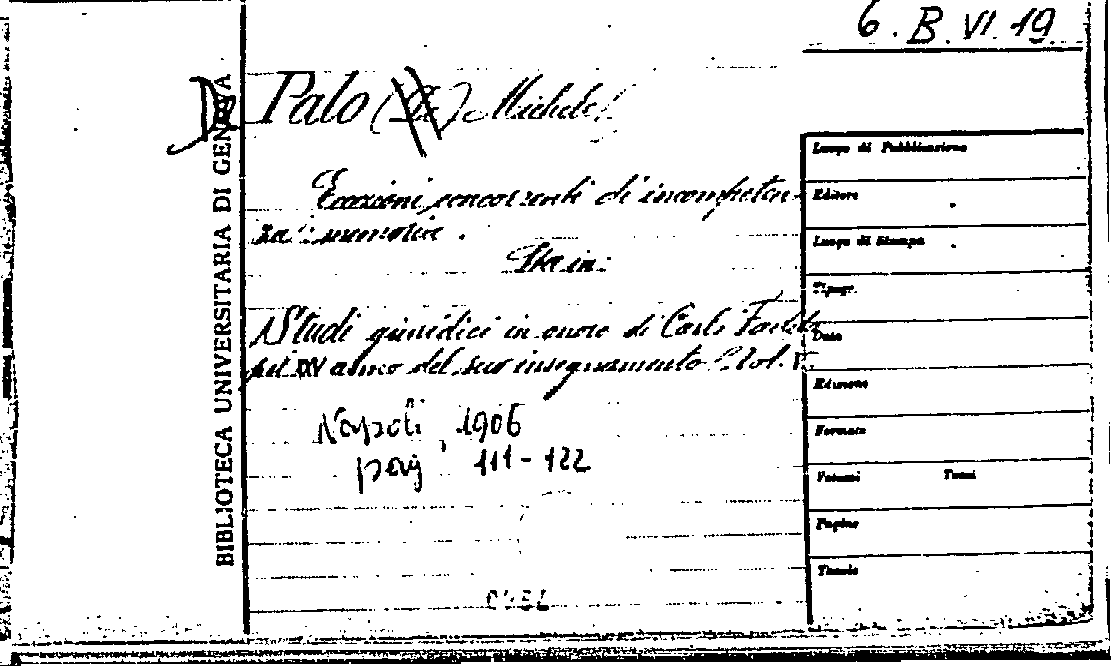 6. B. VI. 19
De Palo (De) Michele
Eccezioni concorrenti di incompeten-
za : memoria.
Sta in:
Studi giuridici in onore di Carlo Fadda
pel XXV anno del suo insegnamento Vol. V.
Napoli 1906
pag. 111-122
BIBLIOTECA UNIVERSITARIA DI GENOVA
Luogo di Pubblicazione
Editore
Luogo di Stampa
Tipogr.
Data
Edizione
Formato
Volumi Tomi
Pagine
Tavole